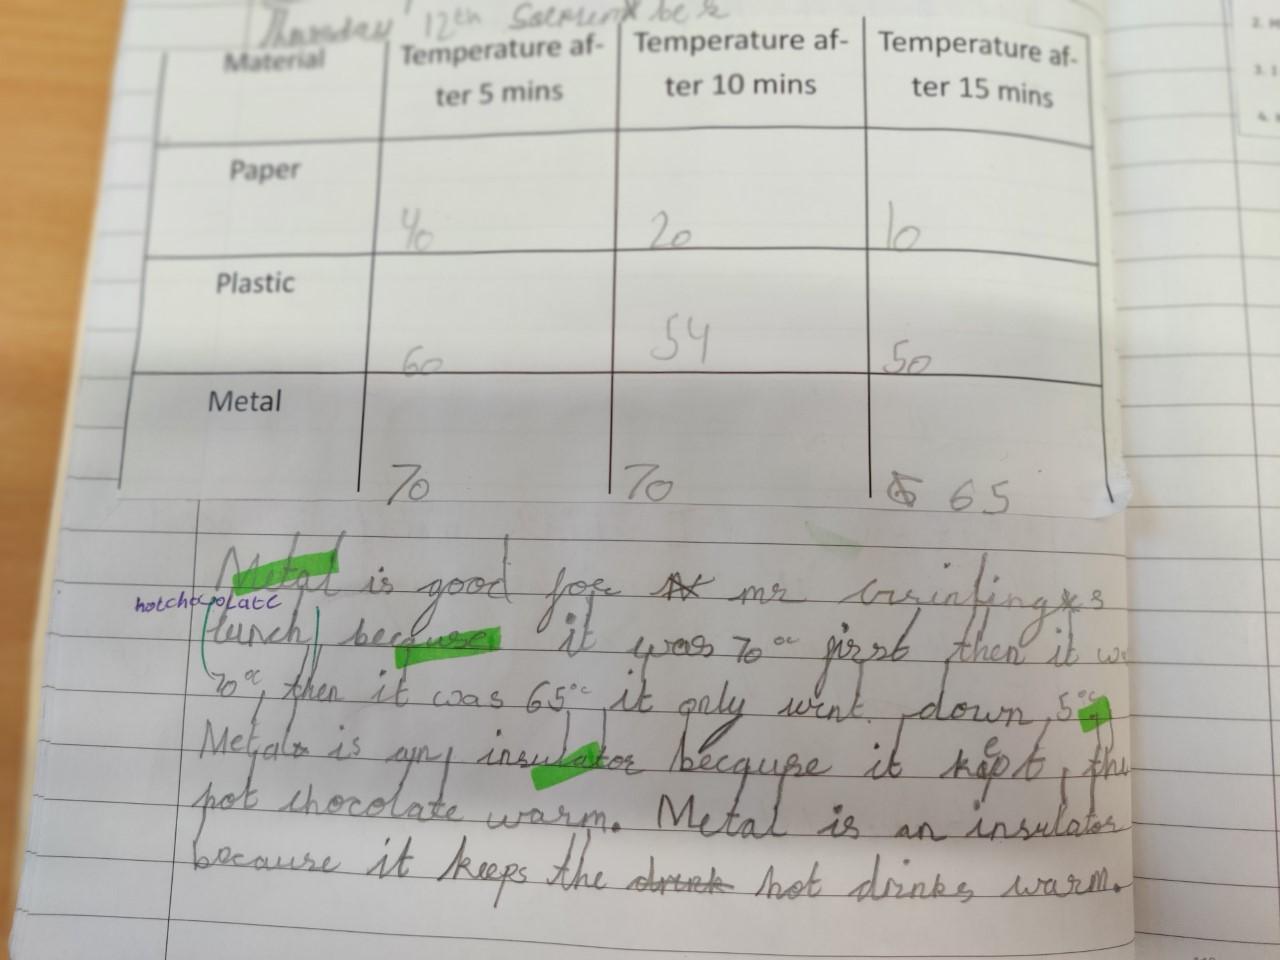 Thursday 12th
Material Temperature af- Temperature af- Temperature af-
ter 5 mins ter 10 mins ter 15 mins
Paper
40 20 10
Plastic
60 54 50
Metal
70 70 65
Metal is good for mr s
hotchocolate
lunch because it was 70°c first then it w
70°c, then it was 65°c it only went down 5°c
Metal is an insulator because it kept the
hot chocolate warm. Metal is an insulator
because it keeps the drink hot drinks warm.
2.
3. I
4.